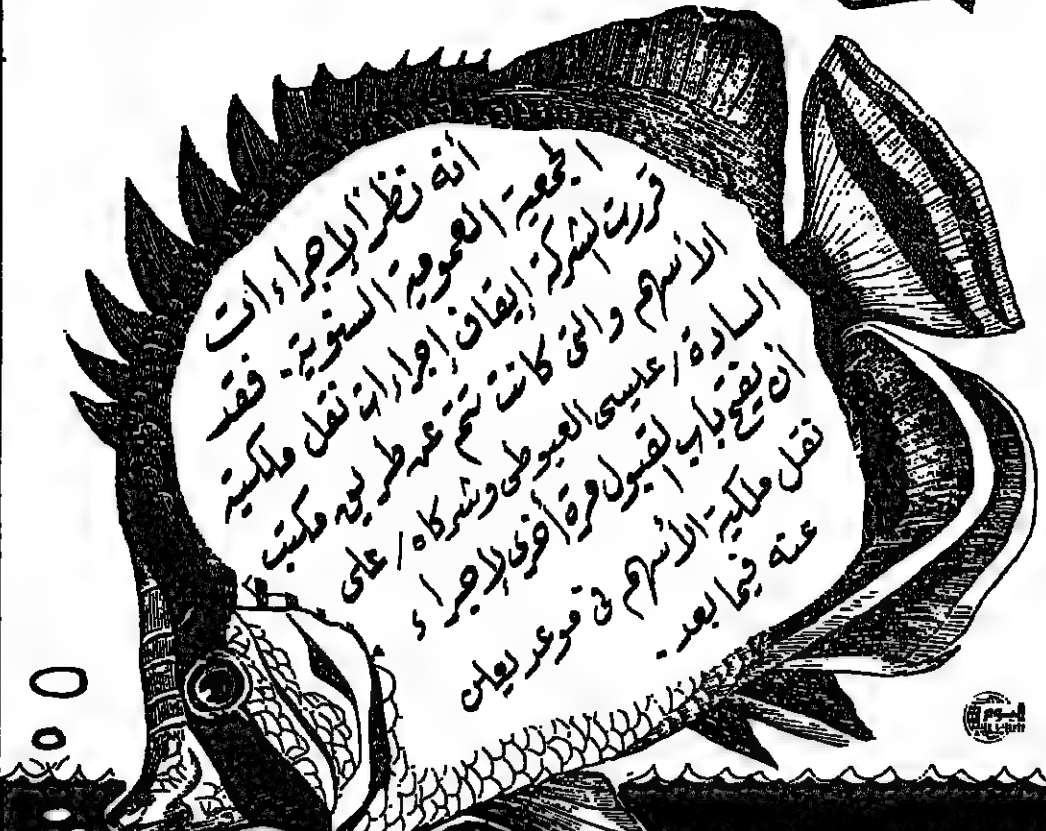 أنه نظرًا لإجراءات
الجمعية العمومية السنوية. فقد
قررت الشركة إيقاف إجراءات نقل ملكية
الأسهم والتي كانت تتم عن طريق مكتب
السادة/ عيسى العيوطي وشركاه/ على
ان يفتح باب القبول مرة أخرى لإجراء
نقل ملكية الأسهم في موعد يعلن
عنه فيما بعد.